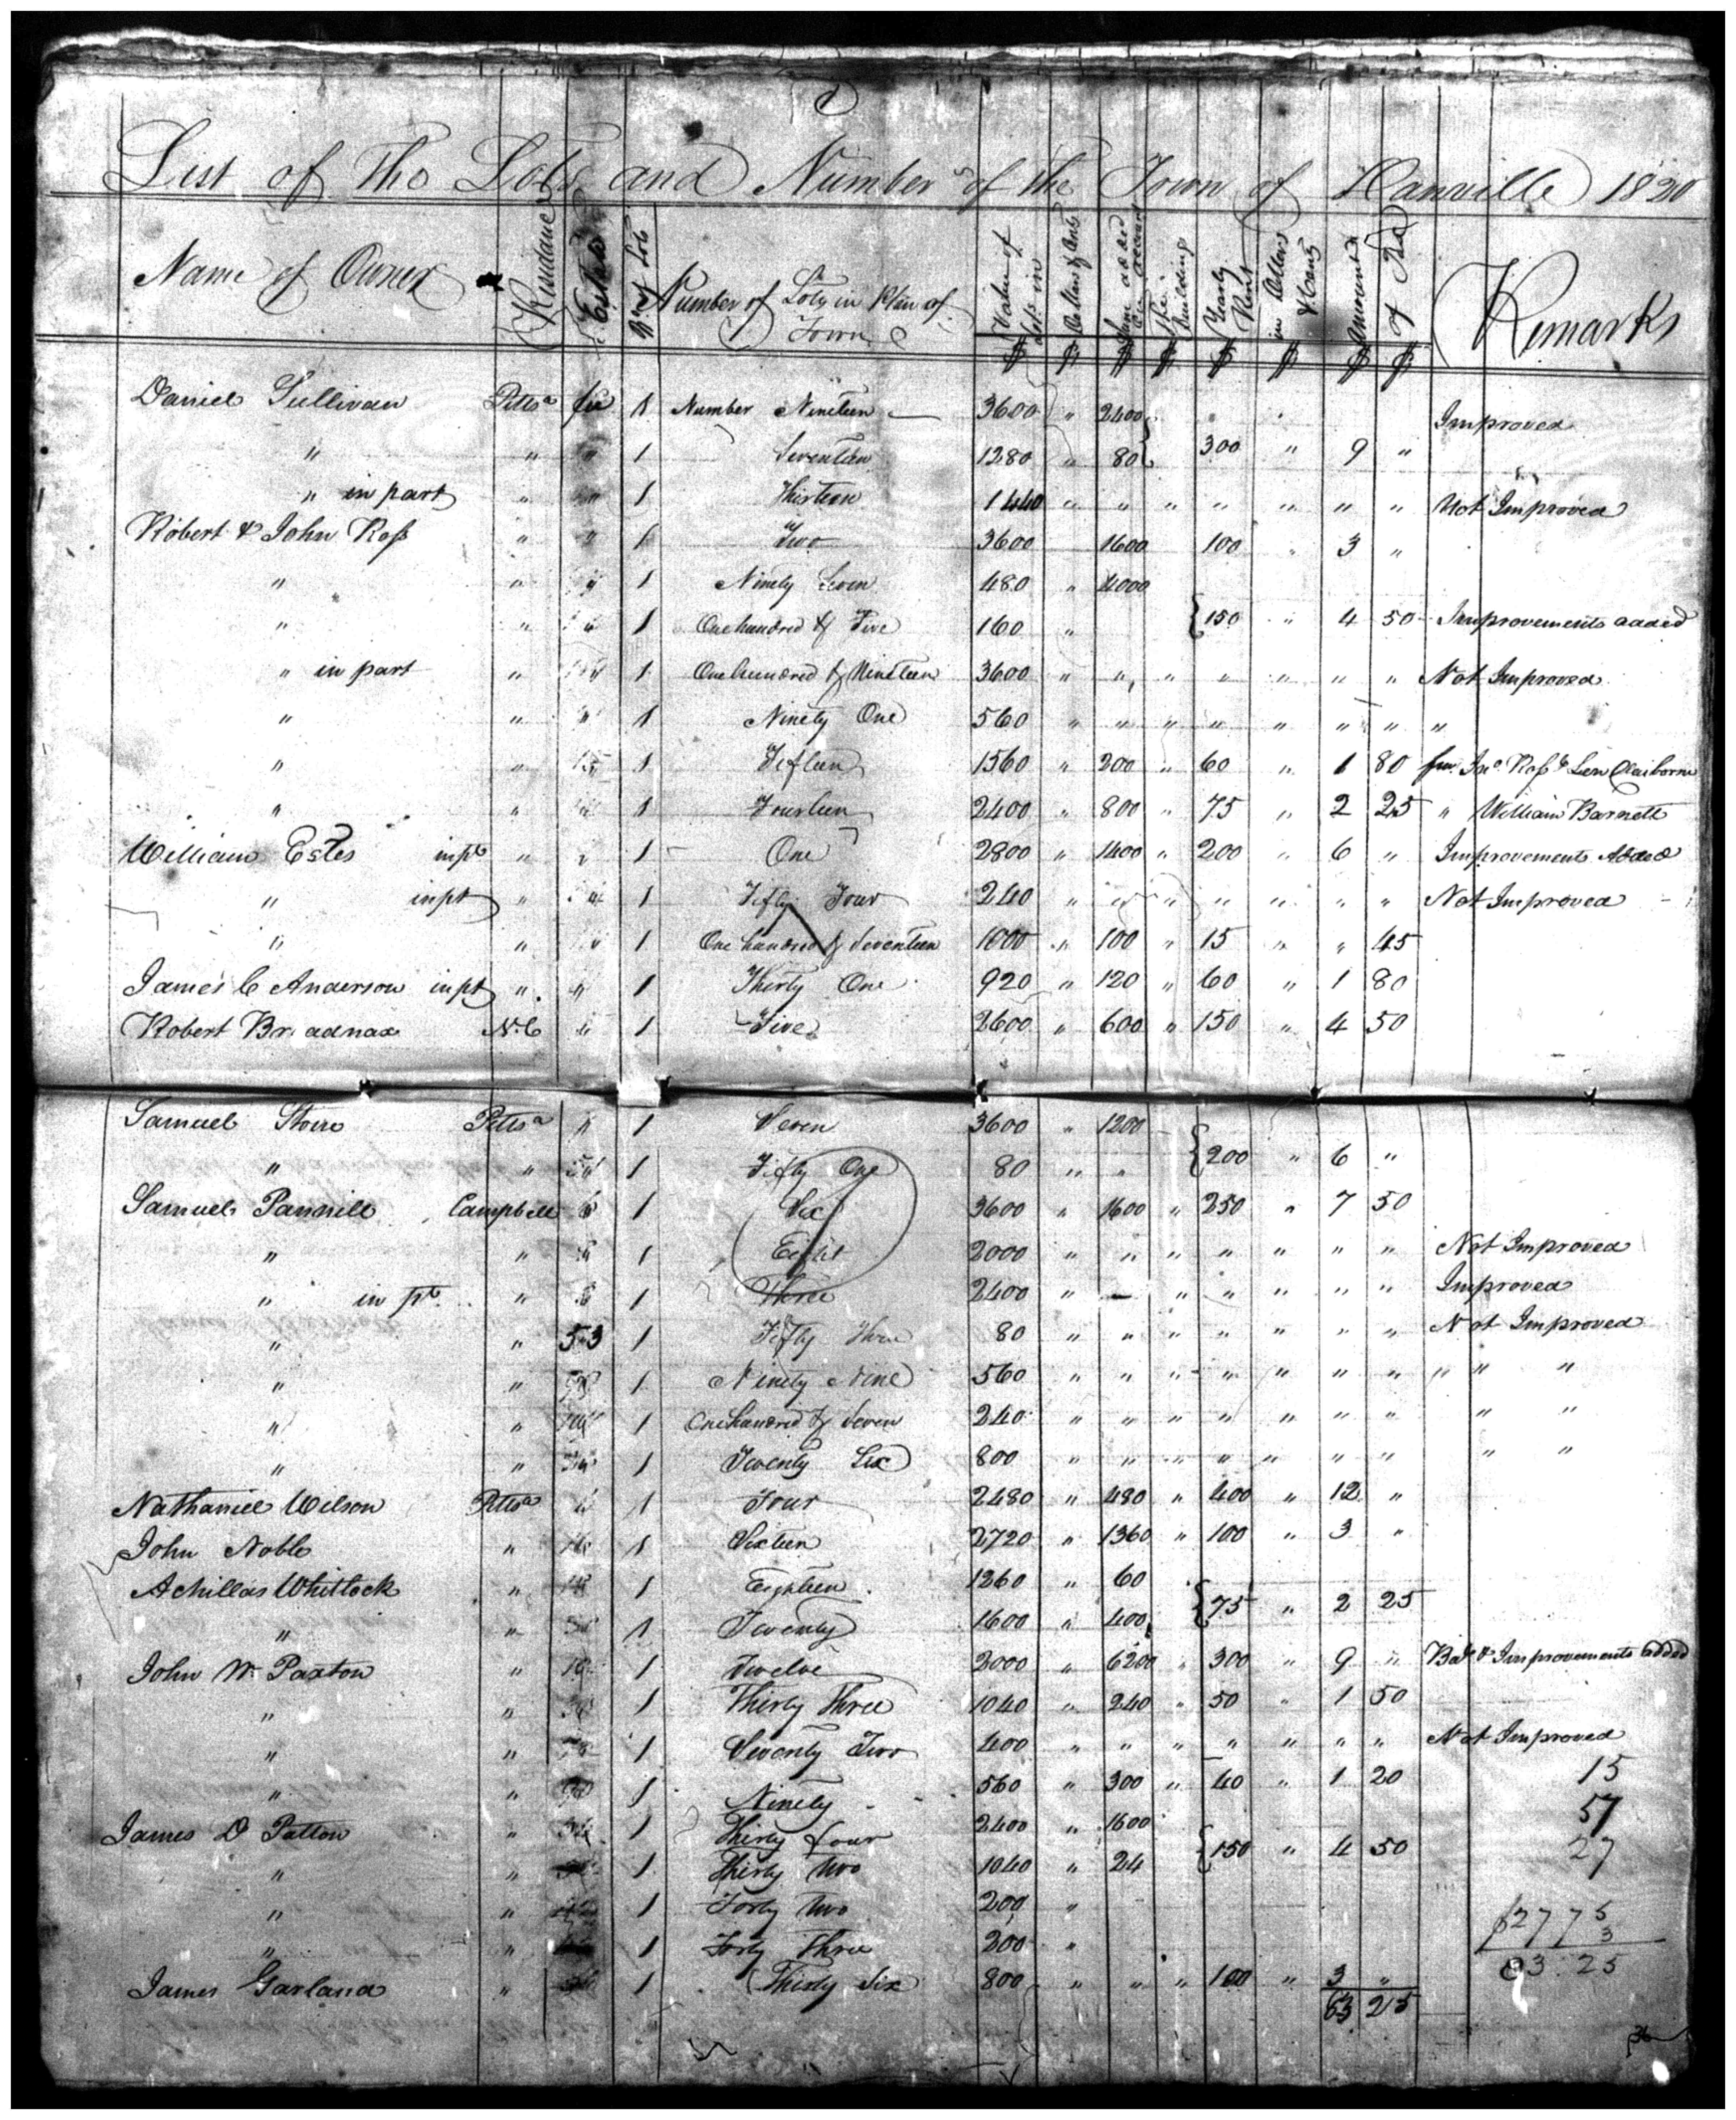 List of The Lots and Numbers of the Town of Danville 1820
Name of Owner Residence Estate No of Lots Number of Lots in Plan of Town Value of Lots in Dollars & Cents Sum added on account of Buildings Yearly Rent in Dollars & Cents Amount of Tax Remarks
$ $ $ $ $ $ $ $
Daniel Sullivan Pittsa fee 1 Number Nineteen 3600 " 2400 Improved
" " " 1 Seventeen 1280 " 80 300 " 9 "
" in part " " 1 Thirteen 1440 " " " " " " " Not Improved
Robert & John Ross " " 1 Two 3600 1600 100 " 3 "
" " " 1 Ninety Seven 480 " 4000
" " " 1 One hundred & Five 160 " 150 " 4 50 Improvements added
" in part " " 1 One hundred & Nineteen 3600 " " " " " " " Not Improved
" " " 1 Ninety One 560 " " " " " " " "
" " 15 1 Fifteen 1560 " 200 " 60 " 1 80 fm Jno Ross & Len Claiborne
" " " 1 Fourteen 2400 " 800 " 75 " 2 25 " William Barnett
William Estes inpt " " 1 One 2800 " 1400 " 200 " 6 " Improvements Added
" inpt " 1 Fifty Four 240 " " " " " " " Not Improved
" " " 1 One hundred & Seventeen 1000 " 100 " 15 " " 45
James C Anderson inpt " " 1 Thirty One 920 " 120 " 60 " 1 80
Robert Broadnax N.C " 1 Five 2600 " 600 " 150 " 4 50
Samuel Stone Pittsa " 1 Seven 3600 " 1200
" " 1 Fifty One 80 " " 200 " 6 "
Samuel Pannill Campbell 1 Six 3600 " 1600 " 250 " 7 50
" " 1 Eight 2000 " " " " " " " Not Improved
" in pt. " 1 Three 2400 " " " " " " Improved
" " 53 1 Fifty Three 80 " " " " " " " Not Improved
" " 1 Ninety Nine 560 " " " " " " " " "
" " 1 One hundred & Seven 240 " " " " " " " " "
" " 1 Twenty Six 800 " " " " " " " " "
Nathaniel Wilson Pittsa 1 Four 2480 " 480 " 400 " 12 "
John Noble " 1 Sixteen 2720 " 1360 " 100 " 3 "
Achillas Whitlock " 1 Eighteen 1260 " 60
" " 1 Twenty 1600 " 400 75 " 2 25
John W. Paxton " 1 Twelve 2000 " 6200 " 300 " 9 " & Improvements added
" " 1 Thirty Three 1040 " 240 " 50 " 1 50
" " 1 Seventy Two 400 " " " " " " " Not Improved
" " 1 Ninety 560 " 300 " 40 " 1 20 15
57
James D Patton " 1 Thirty four 2400 " 1600
" " 1 Thirty two 1040 " 24 150 " 4 50 27
" " 1 Forty two 200 "
" " 1 Forty Three 200 " $27 75
3
James Garland " 1 Thirty Six 800 " " " 100 " 3 " 83.25
63 25
36